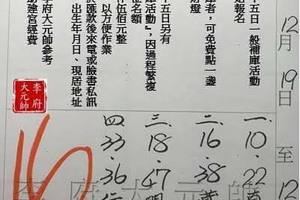 12月19日至12
五日一般補庫活動
報名
者，可免費點一盞
十五日另有
庫活動』，因過程繁複
名額
伍佰元整
以方便作業
匯款後來電或臉書私訊
出生年月日、現居地址
李府大元帥參考
建宮經費
李府
大元帥
一.10.22
二.16.38
三.18.47
四.33.36
16
李府大元帥